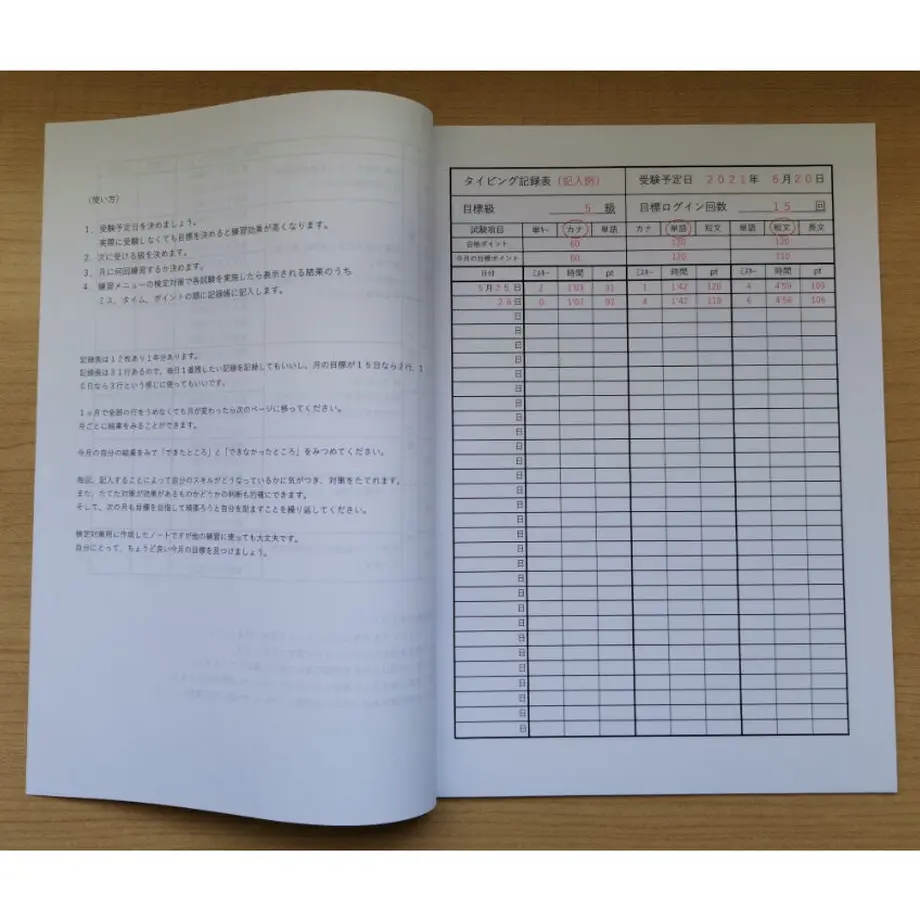 （使い方）
１．受験予定日を決めましょう。
実際に受験しなくても目標を決めると練習効果が高くなります。
２．次に受ける級を決めます。
３．月に何回練習するか決めます。
４．練習メニューの検定対策で各試験を実施したら表示される結果のうち
ミス、タイム、ポイントの順に記録帳に記入します。
記録表は１２枚あり１年分あります。
記録表は３１行あるので、毎日１番残したい記録を記録してもいいし、月の目標が１５日なら２行、１
０日なら３行という感じに使ってもいいです。
１ヶ月で全部の行をうめなくても月が変わったら次のページに移ってください。
月ごとに結果をみることができます。
今月の自分の結果をみて「できたところ」と「できなかったところ」をみつめてください。
毎回、記入することによって自分のスキルがどうなっているかに気がつき、対策をたてれます。
また、たてた対策が効果があるものかどうかの判断も的確にできます。
そして、次の月も目標を目指して頑張ろうと自分を励ますことを繰り返してください。
検定対策用に作成したノートですが他の練習に使っても大丈夫です。
自分にとって、ちょうど良い今月の目標を見つけましょう。
タイピング記録表（記入例） 受験予定日 ２０２１年 ６月２０日
目標級 ５ 級 目標ログイン回数 １５ 回
試験項目 単ｷｰ カナ 単語 カナ 単語 短文 単語 短文 長文
合格ポイント 60 120 120
今月の目標ポイント 60 120 110
日付 ﾐｽｷｰ 時間 pt ﾐｽｷｰ 時間 pt ﾐｽｷｰ 時間 pt
5月２５日 2 1'03 91 1 1'42 120 4 4'59 109
２８日 0 1'07 92 4 1'42 118 6 4'56 106
日
日
日
日
日
日
日
日
日
日
日
日
日
日
日
日
日
日
日
日
日
日
日
日
日
日
日
日
日